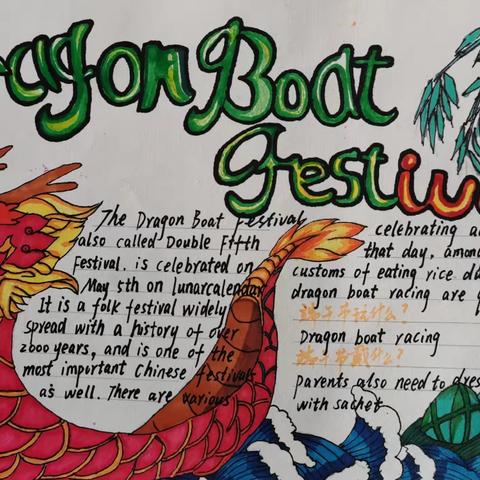 Dragon Boat
Festiv
The Dragon Boat Festival
also called Double Fifth
Festival. is celebrated on
May 5th on lunarcalendar
It is a folk festival widely
spread with a history of over
2000 years, and is one of the
most important Chinese festivals
as well. There are various
celebrating a
that day, among
customs of eating rice du
dragon boat racing are
端午节玩什么?
Dragon boat racing
端午节戴什么?
parents also need to dres
with sachet